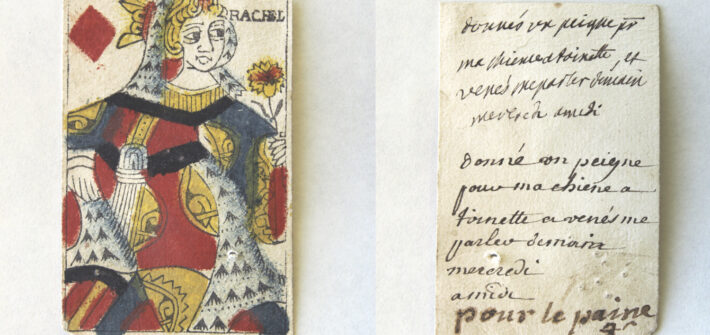 RACHEL
donnés un peigne pr
ma chiene a toinette, et
venés me parler demain
mercredi a midi
donné un peigne
pour ma chiene a
toinette a venés me
parler demain
mercredi
a midi
pour le paine